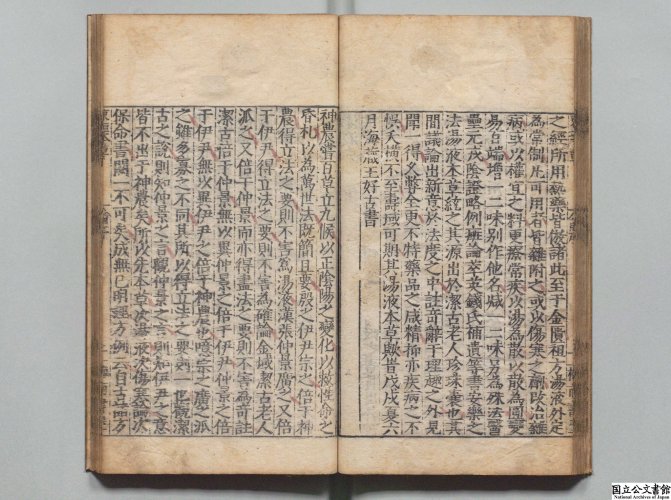 之經所用熱藥皆倣諸此至于金匱祖方湯液外定
為常制凡可用者皆雜附之或以傷寒之劑改治雜
病或以權宜之料更療常疾以湯為散以散為圓變
易百端增一二味別作他名減一二味另為殊法醫
壘元戎陰證略例斑論萃英錢氏補遺等書安樂之
法湯液本草統之其源出於潔古老人珍珠囊也其
間議論出新意於法度之中註奇辭于理趣之外見
聞一得久弊全更不特藥品之咸精抑亦疾病之不
誤夭橫不至壽域可期其湯液本草歟昔戊戌夏六
月海藏王好古書
神農嘗百草立九候以正陰陽之變化以救性命之
昏札以為萬世法既簡且要殷之伊尹宗之倍于神
農得立法之要則不害為湯液漢張仲景廣之又倍
于伊尹得立法之要則不害為確論金域潔古老人
派之又倍于仲景而亦得盡法之要則不害為奇註
潔古倍于仲景無以異仲景之倍于伊尹仲景之倍
于伊尹無以異伊尹之倍于神農噫宗之廣之派
之雖多寡之不同其所以得立法之要則一也觀潔
古之說則知仲景之言觀仲景之言則知伊尹之意
皆不出于神農矣所以先本草次湯液次傷寒論次
保命書闕一不可矣成無己明經方例云自古諸方
国立公文書館
National Archives of Japan